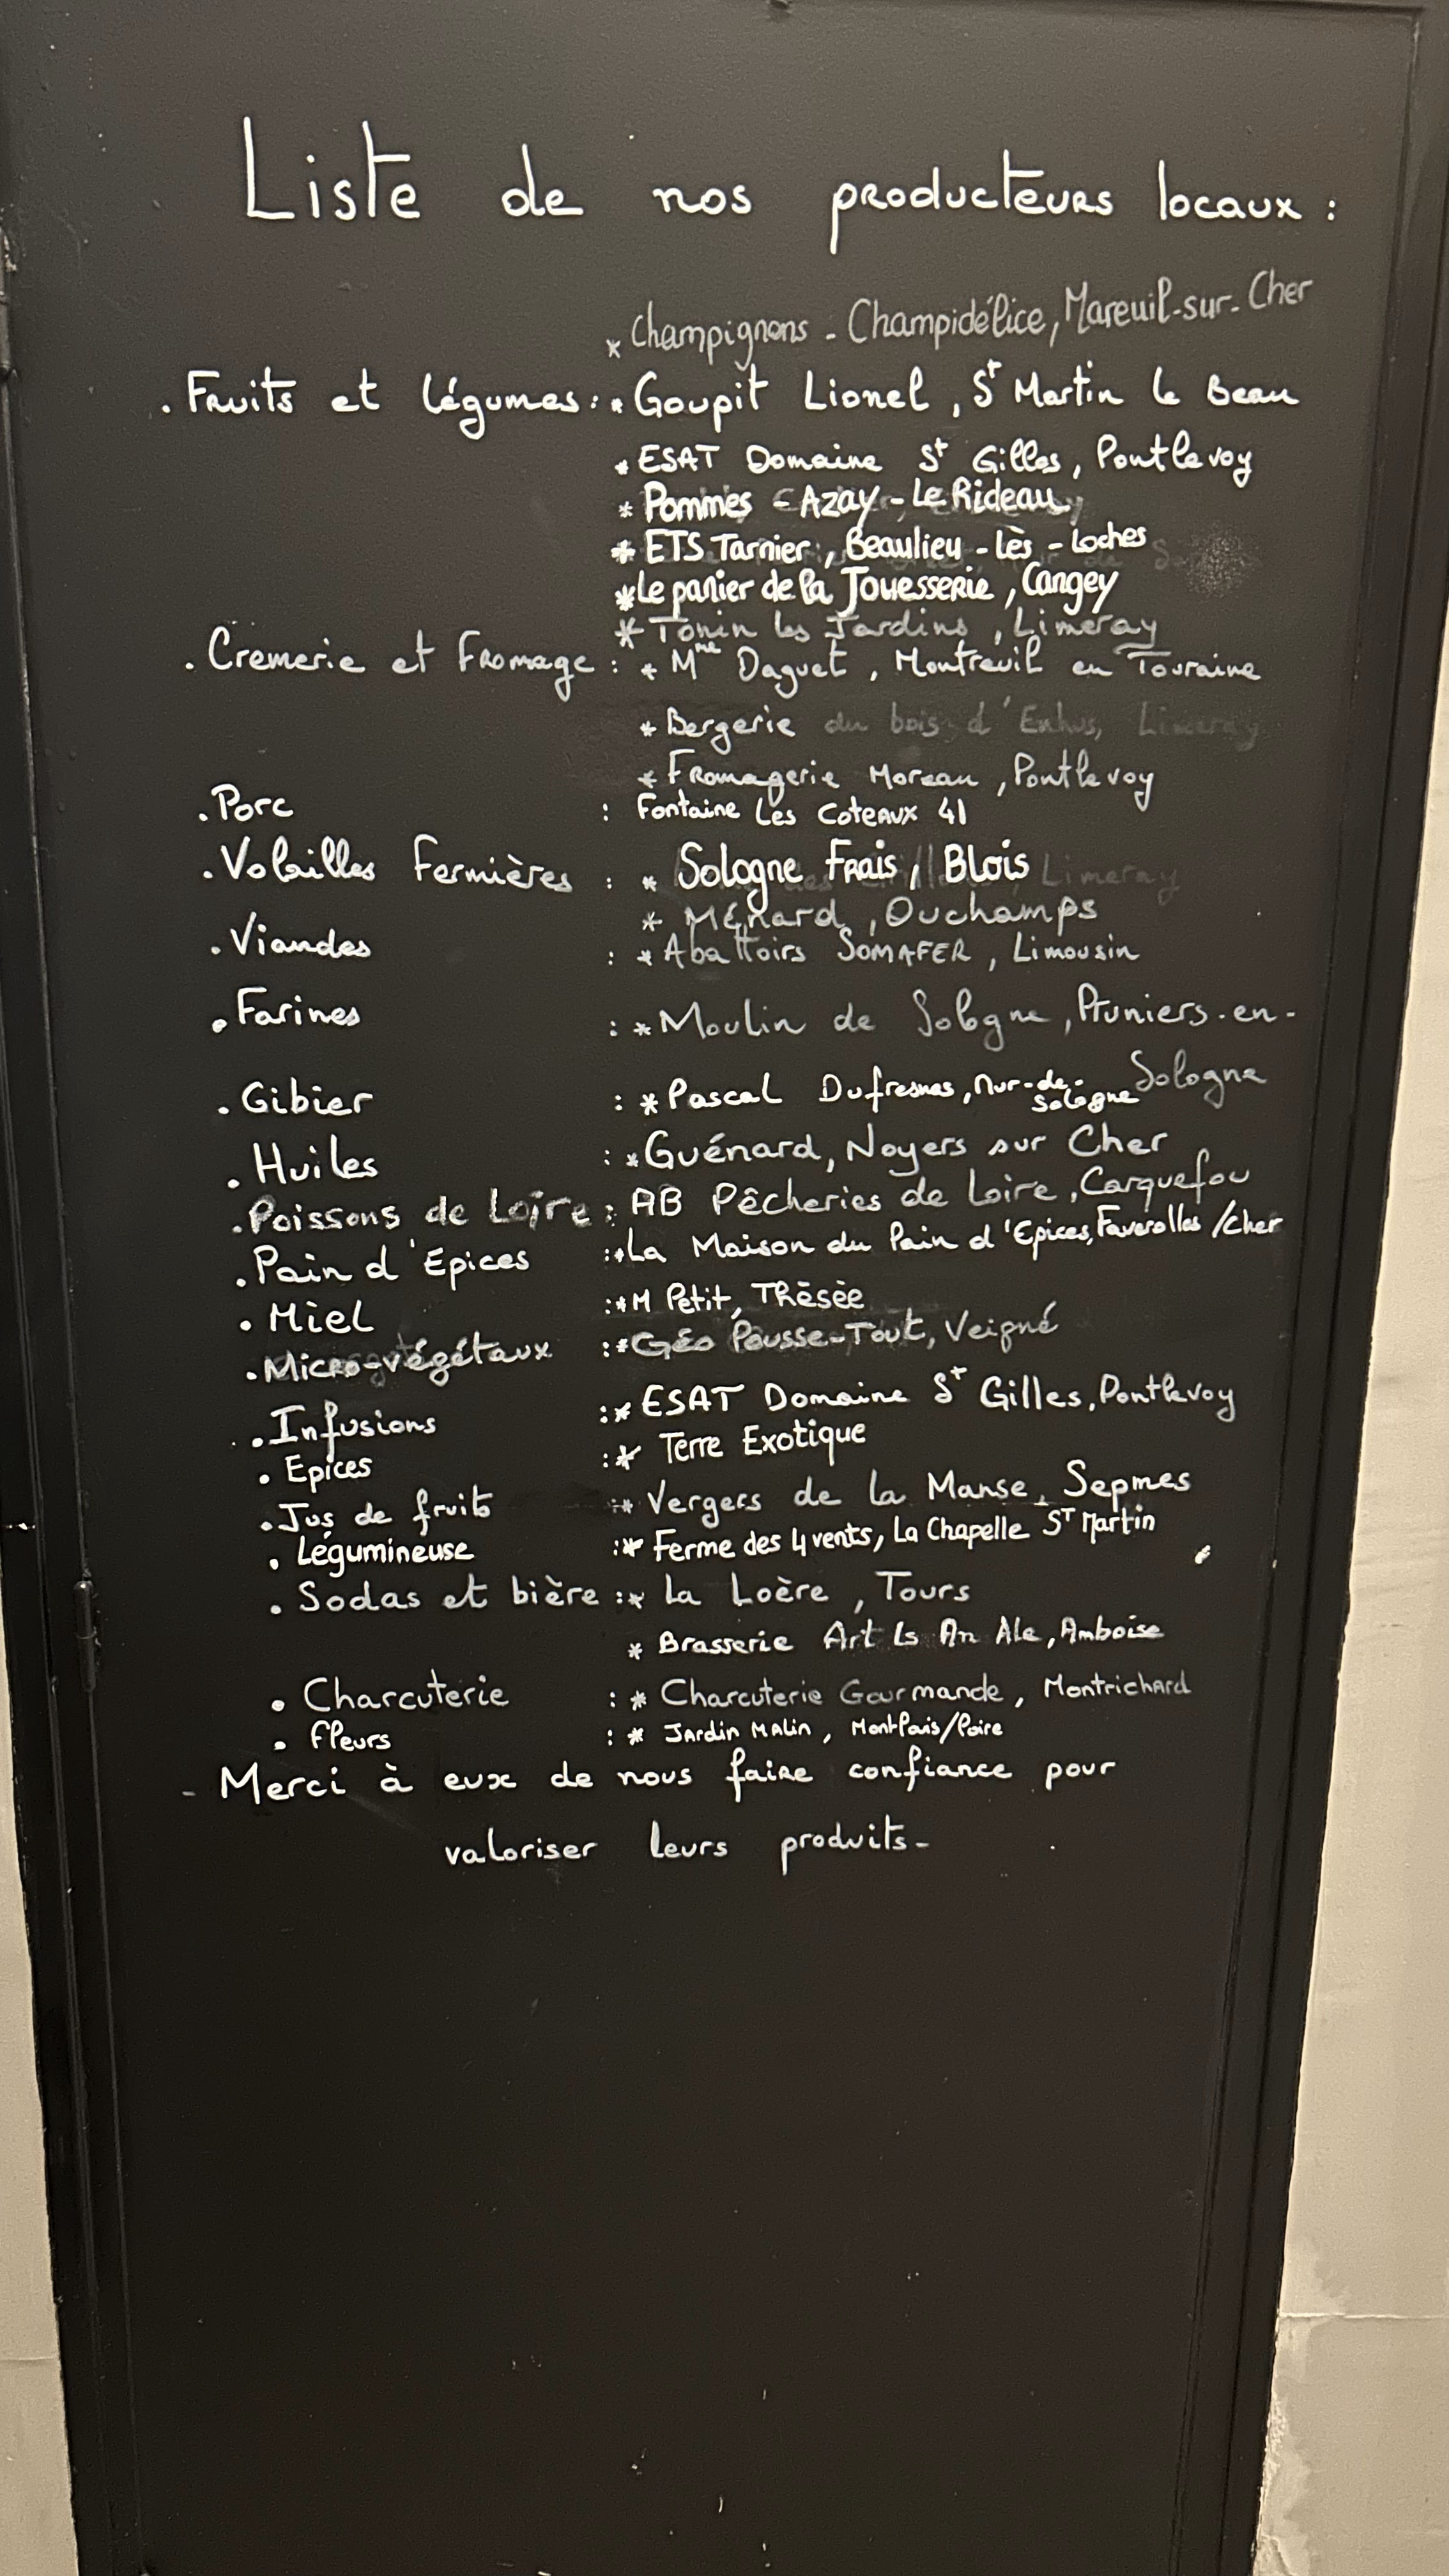 Liste de nos producteurs locaux :
* Champignons - Champidélice, Mareuil-sur-Cher
. Fruits et légumes : * Goupit Lionel, St Martin le Beau
* ESAT Domaine St Gilles, Pontlevoy
* Pommes - Azay-Le Rideau
* ETS Tarnier, Beaulieu-Lès-Loches
* Le panier de la Jouesserie, Cangey
* Tonin les Jardins, Limeray
. Cremerie et Fromage : * Mme Daguet, Montreuil en Touraine
* Bergerie du bois d'Enhus, Limeray
* Fromagerie Moreau, Pontlevoy
. Porc : Fontaine Les Coteaux 41
. Volailles Fermières : * Sologne Frais, Blois
* Ménard, Ouchamps
. Viandes : * Abattoirs SOMAFER, Limousin
. Farines : * Moulin de Sologne, Pruniers-en-Sologne
. Gibier : * Pascal Dufresnes, Mur-de-Sologne
. Huiles : * Guénard, Noyers sur Cher
. Poissons de Loire : AB Pêcheries de Loire, Carquefou
. Pain d'Epices : * La Maison du Pain d'Epices, Faverolles /Cher
. Miel : * M Petit, Thésée
. Micro-végétaux : * Géo Pousse-Tout, Veigné
. Infusions : * ESAT Domaine St Gilles, Pontlevoy
. Epices : * Terre Exotique
. Jus de fruits : * Vergers de la Manse, Sepmes
. Légumineuse : * Ferme des 4 vents, La Chapelle St Martin
. Sodas et bière : * La Loère, Tours
* Brasserie Art Is An Ale, Amboise
. Charcuterie : * Charcuterie Gourmande, Montrichard
. Fleurs : * Jardin Malin,
- Merci à eux de nous faire confiance pour
valoriser leurs produits -